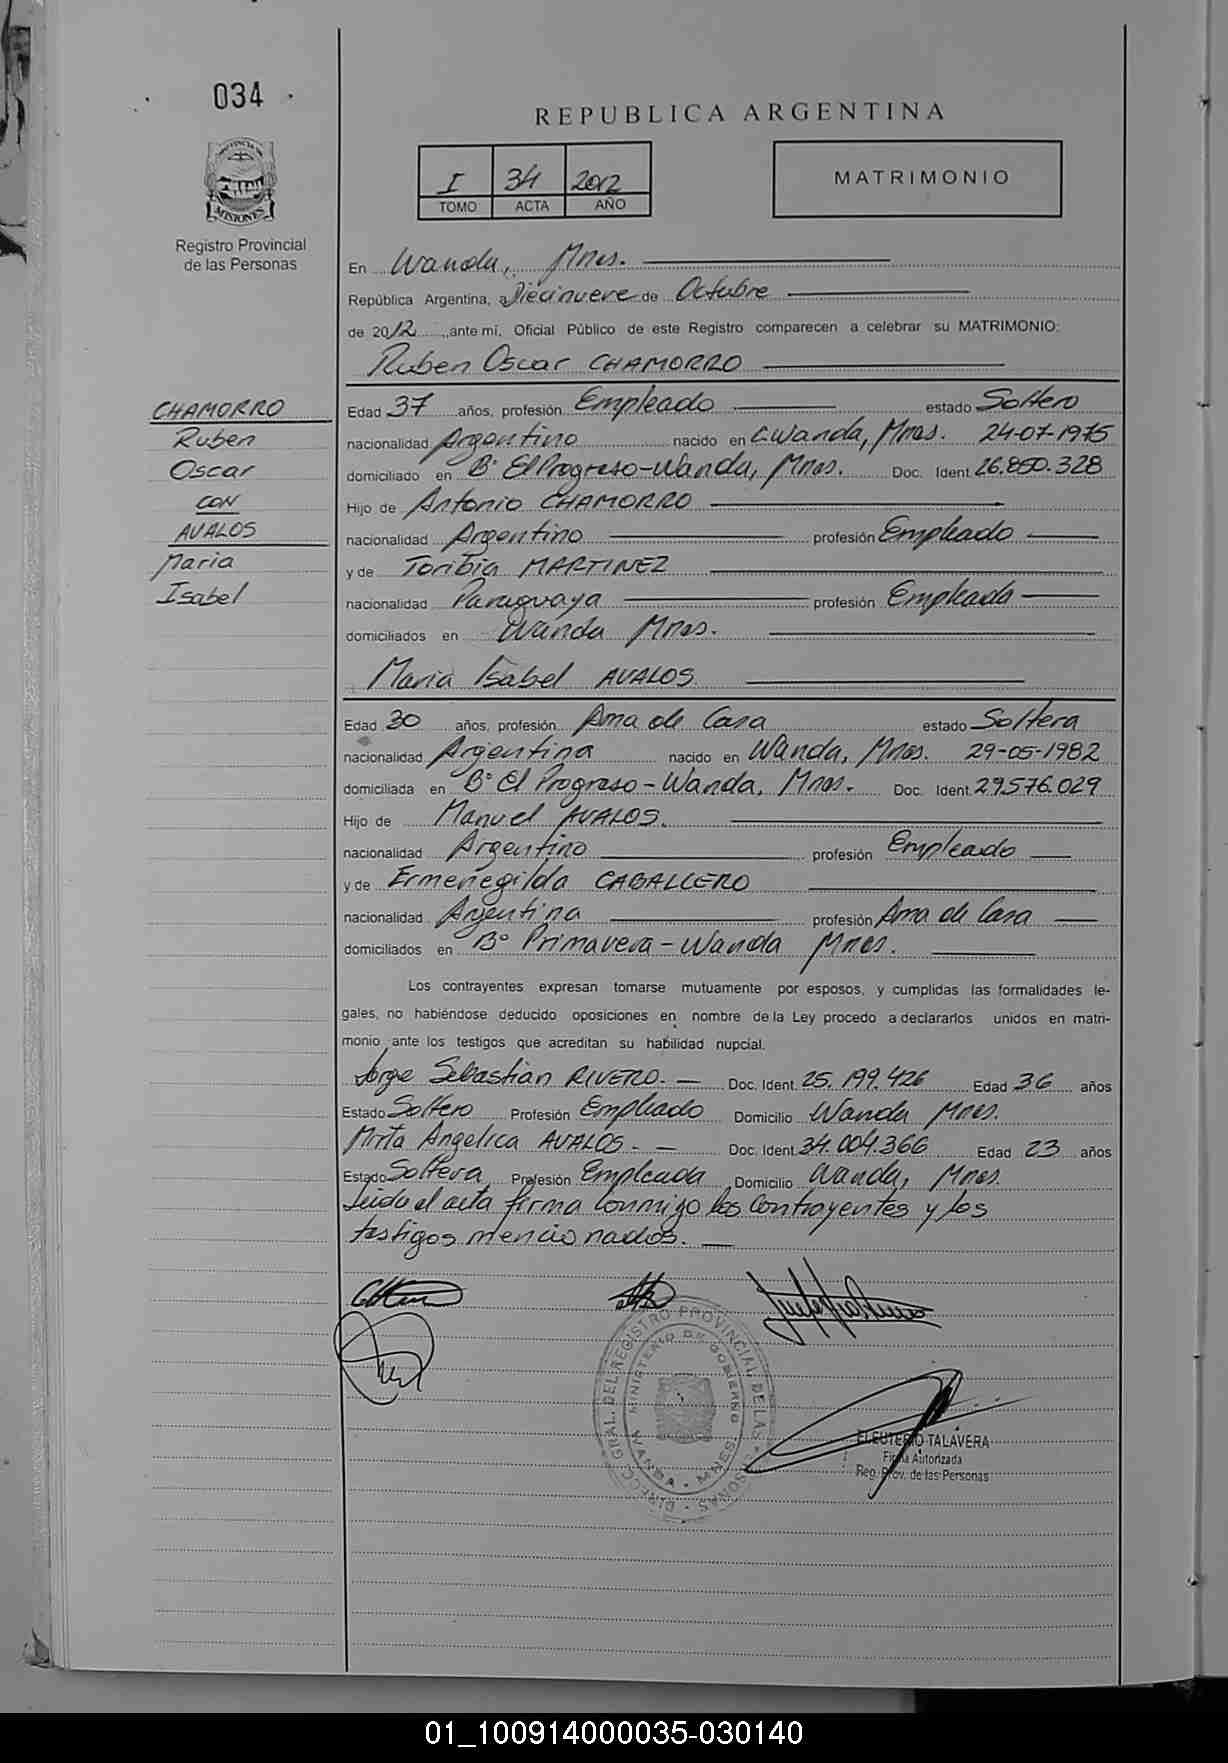 034
PROVINCIA DE
MISIONES
Registro Provincial
de las Personas
REPUBLICA ARGENTINA
I 34 2012
TOMO ACTA AÑO
MATRIMONIO
En Wanda, Mnes.
República Argentina, a Diecinueve de Octubre
de 2012 ,ante mí, Oficial Público de este Registro comparecen a celebrar su MATRIMONIO:
Ruben Oscar CHAMORRO
CHAMORRO
Ruben
Oscar
CON
AVALOS
Maria
Isabel
Edad 37 años, profesión Empleado estado Soltero
nacionalidad Argentino nacido en Wanda, Mnes. 24-07-1975
domiciliado en B° El Progreso-Wanda, Mnes. Doc. Ident. 26.850.328
Hijo de Antonio CHAMORRO
nacionalidad Argentino profesión Empleado
y de Toribia MARTINEZ
nacionalidad Paraguaya profesión Empleada
domiciliados en Wanda Mnes.
Maria Isabel AVALOS
Edad 30 años, profesión Ama de Casa estado Soltera
nacionalidad Argentina nacido en Wanda, Mnes. 29-05-1982
domiciliada en B° El Progreso-Wanda, Mnes. Doc. Ident. 29.576.029
Hijo de Manuel AVALOS.
nacionalidad Argentino profesión Empleado
y de Ermenegilda CABALLERO
nacionalidad Argentina profesión Ama de Casa
domiciliados en B° Primavera-Wanda Mnes.
Los contrayentes expresan tomarse mutuamente por esposos, y cumplidas las formalidades le-
gales, no habiéndose deducido oposiciones en nombre de la Ley procedo a declararlos unidos en matri-
monio ante los testigos que acreditan su habilidad nupcial.
Jorge Sebastian RIVERO.- Doc. Ident. 25.199.426 Edad 36 años
Estado Soltero Profesión Empleado Domicilio Wanda Mnes.
Mirta Angelica AVALOS.- Doc. Ident. 34.004.366 Edad 23 años
Estado Soltera Profesión Empleada Domicilio Wanda, Mnes.
Leido el acta firma conmigo los contrayentes y los
testigos mencionados.
DIRECC. GRAL. DEL REGISTRO PROVINCIAL DE LAS PERSONAS
MINISTERIO DE GOBIERNO
WANDA - MNES
ELEUTERIO TALAVERA
Firma Autorizada
Reg. Prov. de las Personas
01_100914000035-030140